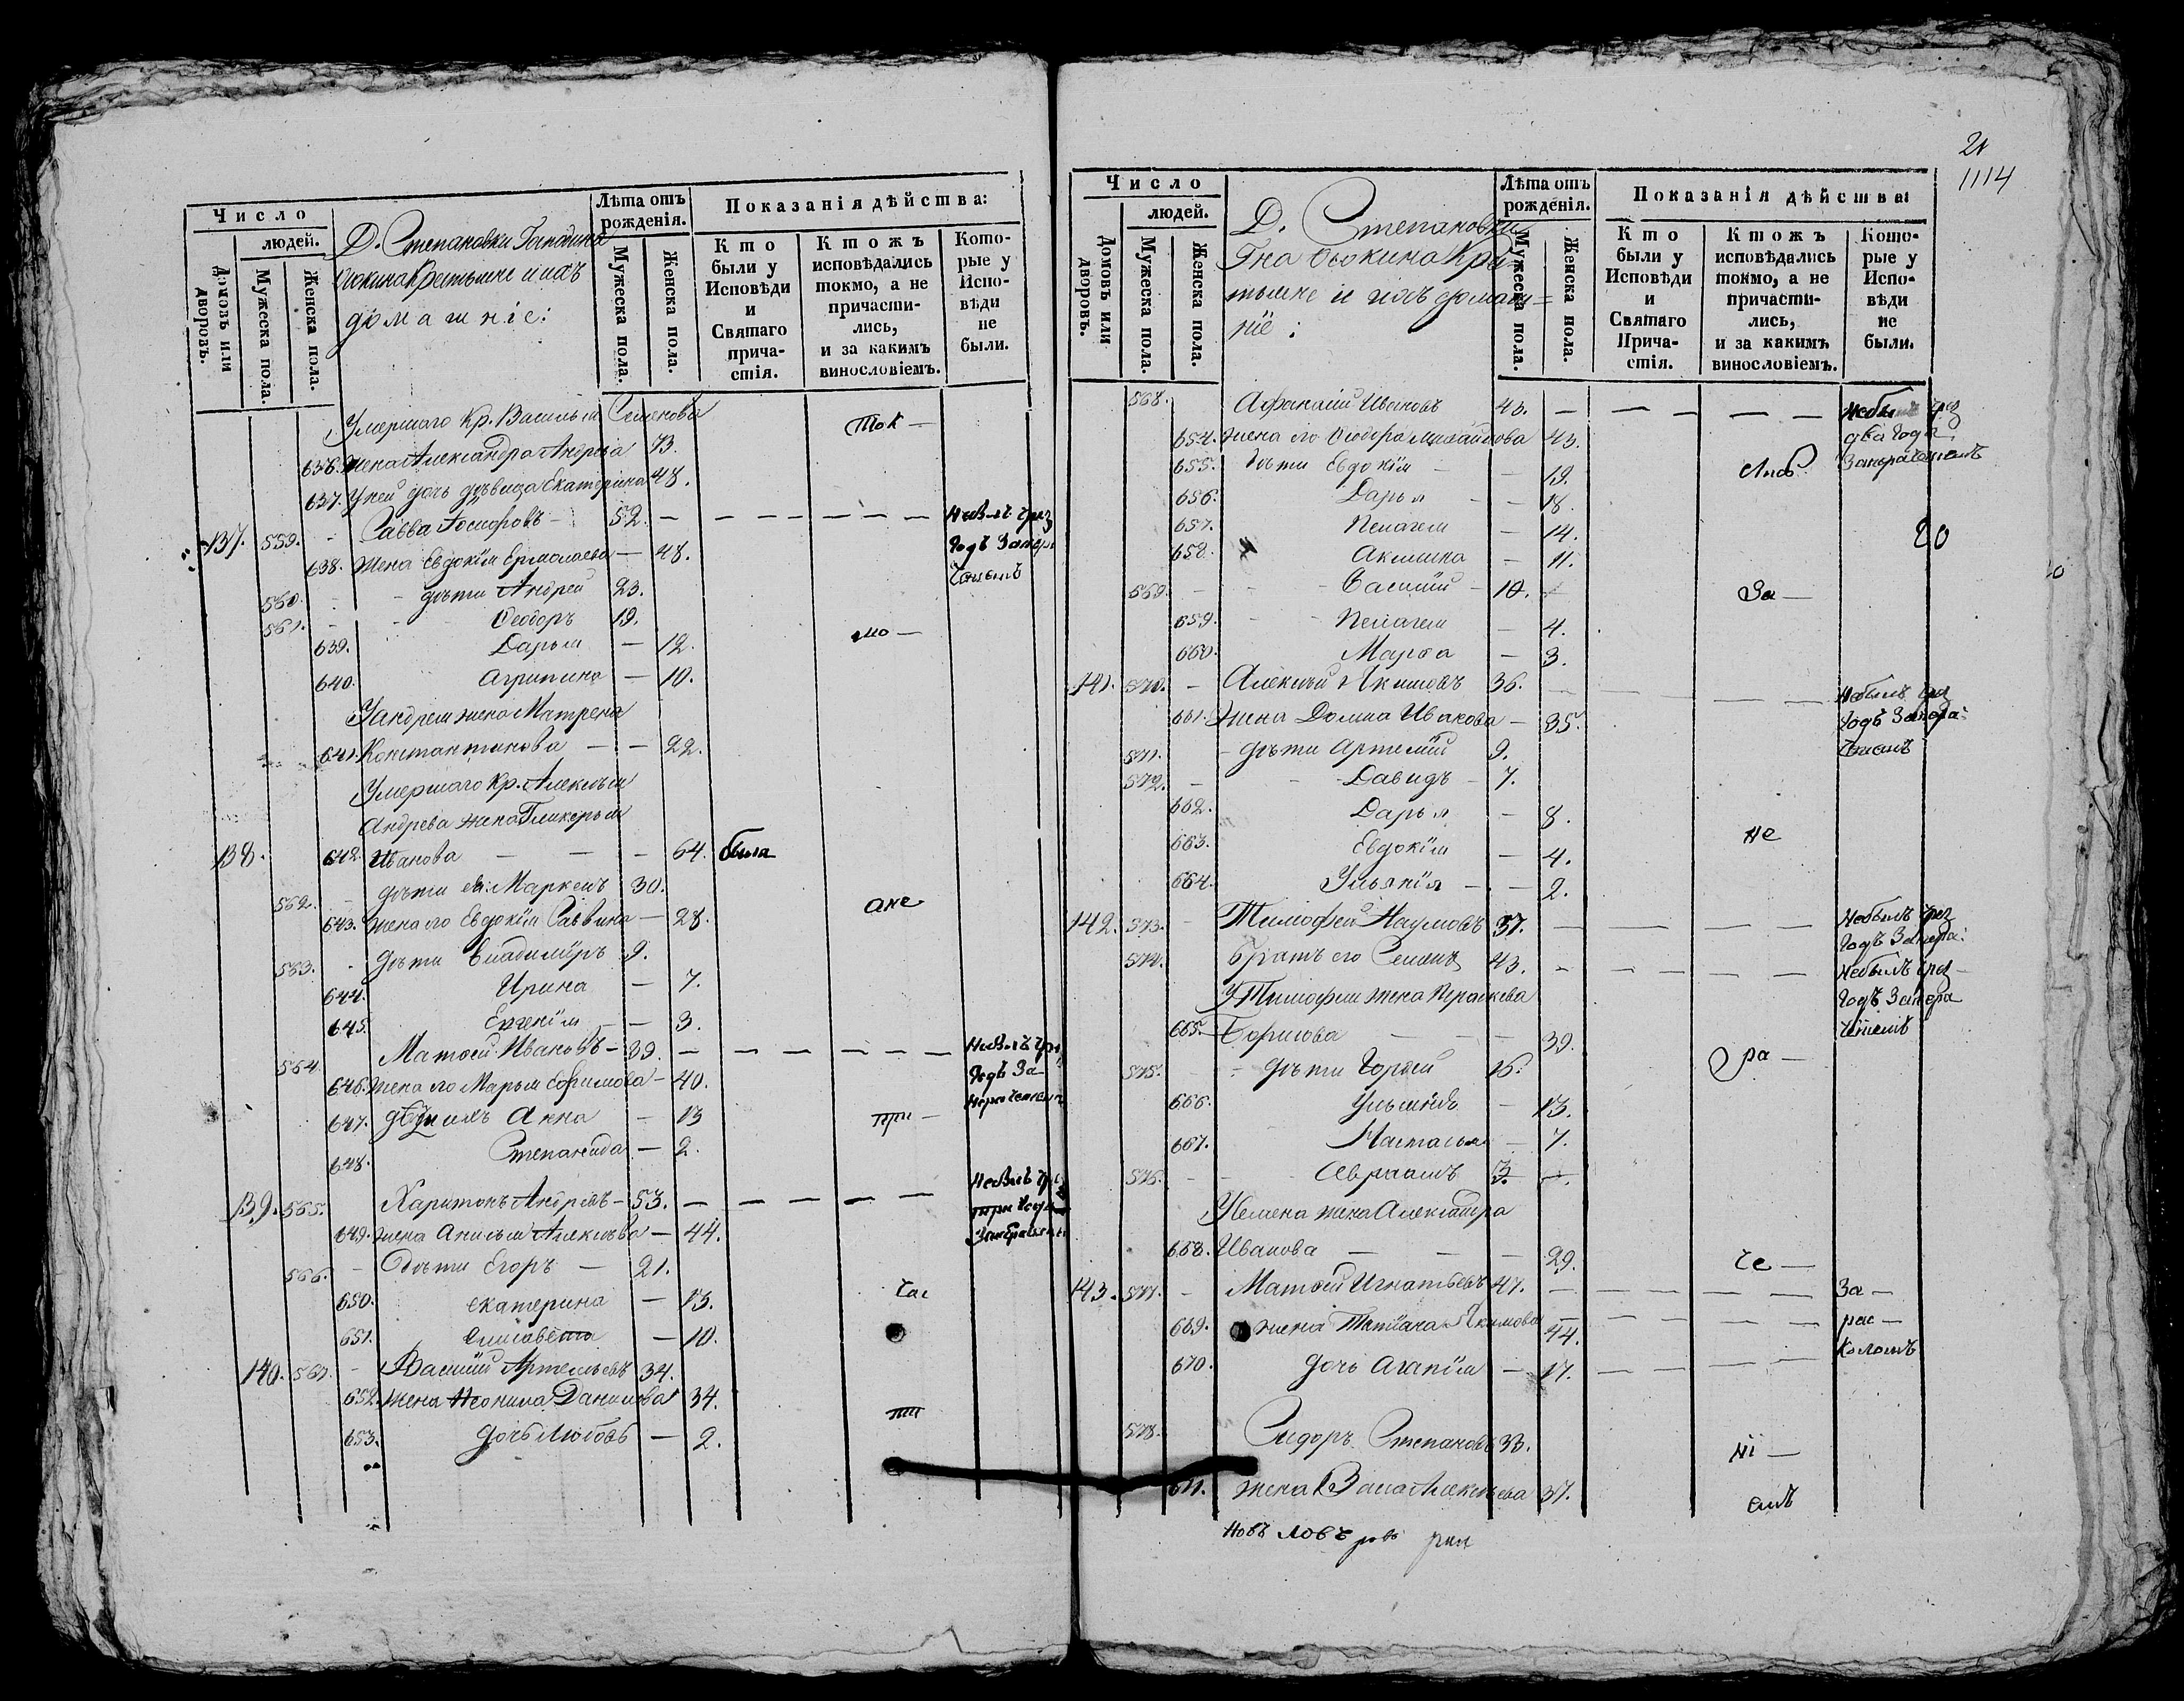 Число
людей.
Домовъ или дворовъ.
Мужеска пола.
Женска пола.
Д. Степановки Господина
Крестьяне и ихъ
домашніе:
Лѣта отъ рожденія.
Мужеска пола.
Женска пола.
Показанія дѣйства:
Кто были у Исповѣди и Святаго причастія.
Ктожъ исповѣдались токмо, а не причастились, и за какимъ винословіемъ.
Которые у Исповѣди не были.
Умершаго Кр. Василья Семенова
ток —
636. жена Александра Андрева 73.
637. У ней дочь дѣвица Екатерина 48.
137. 559. - Савва Іосифовъ - 52. — — — — — — Небылъ чрез
638. жена Евдокія Ермолаева — 48. годъ
560. - - дѣти Андрей 23.
561. - - Ѳеодоръ 19.
мо —
639. Дарья — 12.
640. Агрипина — 10.
У Андрея жена Матрена
641. Константинова — - — 22.
Умершаго Кр. Алексѣя
Андрева жена Гликерья
138. 642. Иванова — — — 64. была
562. - дѣти ея: Маркелъ 30.
ане
643. жена его Евдокія Саввина — 28.
563. - дѣти Владимиръ 9.
644. Ирина — 7.
645. Евгенія — — 3.
564. Матѳей Ивановъ - 39. — — — — — — Небылъ чрез
646. жена его Марья Ефимова - 40. годъ За-
647. дѣти ихъ Анна — 13
при —
648. Степанида — 2.
139. 565. Харитонъ Андреевъ - 53. — — — — — Небылъ чрез
649. жена Анисья Алексѣева — 44. три года
566. - дѣти Егоръ — 21.
650. екатерина — 13.
час
651. Елисавета — 10.
140. 567. - Василій Артемьевъ 34.
652. жена Неонила Данилова 34.
ти
653. дочь Любовь — 2.
21
1114
Число
людей.
Домовъ или дворовъ.
Мужеска пола.
Женска пола.
Д. Степановки
Гна Сѣокина Кре-
стьяне и ихъ домаш=
ніе:
Лѣта отъ рожденія.
Мужеска пола.
Женска пола.
Показанія дѣйства:
Кто были у Исповѣди и Святаго Причастія.
Ктожъ исповѣдались токмо, а не причастились, и за какимъ винословіемъ.
Которые у Исповѣди не были.
568. Афанасій Ивановъ 43. — — — — — Небылъ чрез
654. жена его Ѳеодора Михайлова 43. два года
655. дѣти Евдокія — — 19.
656. Дарья - — 18.
657. Пелагея — 14.
20
658. Акилина — 11.
569. - - Василій - 10.
За —
659. - - Пелагея — 4.
660. Марѳа — 3.
141. 570. - Алексѣй Якимовъ 36. — — — — — Небылъ чрез
661. жена Домна Иванова — 35. годъ
571. - дѣти Артемій 9.
572. - - Давидъ - 7.
662. Дарья — 8.
не
663. Евдокія — 4.
664. Ульянія — — 2.
142. 573. - Тимофей Наумовъ 37. — — — — Небылъ чрез
годъ
574. Братъ его Семенъ 43. — — — — — Небылъ чрез
У Тимофея жена Прасковья годъ
665. Борисова — — — 39.
ра —
575. - - дѣти 16.
666. — 13.
667. Настасья — 7.
576. - - Авраамъ 3.
У Семена жена Александра
668. Иванова — — — 29.
че —
143. 577. - Матѳей Игнатьевъ 47. — — — — — За —
669. жена Татіана Якимова 44. — — — — рас —
670. дочь Агапія — 17. — — — — коломъ
578. Сидоръ Степановъ 33.
ні —
671. жена Васса Алексѣева 37.
емъ